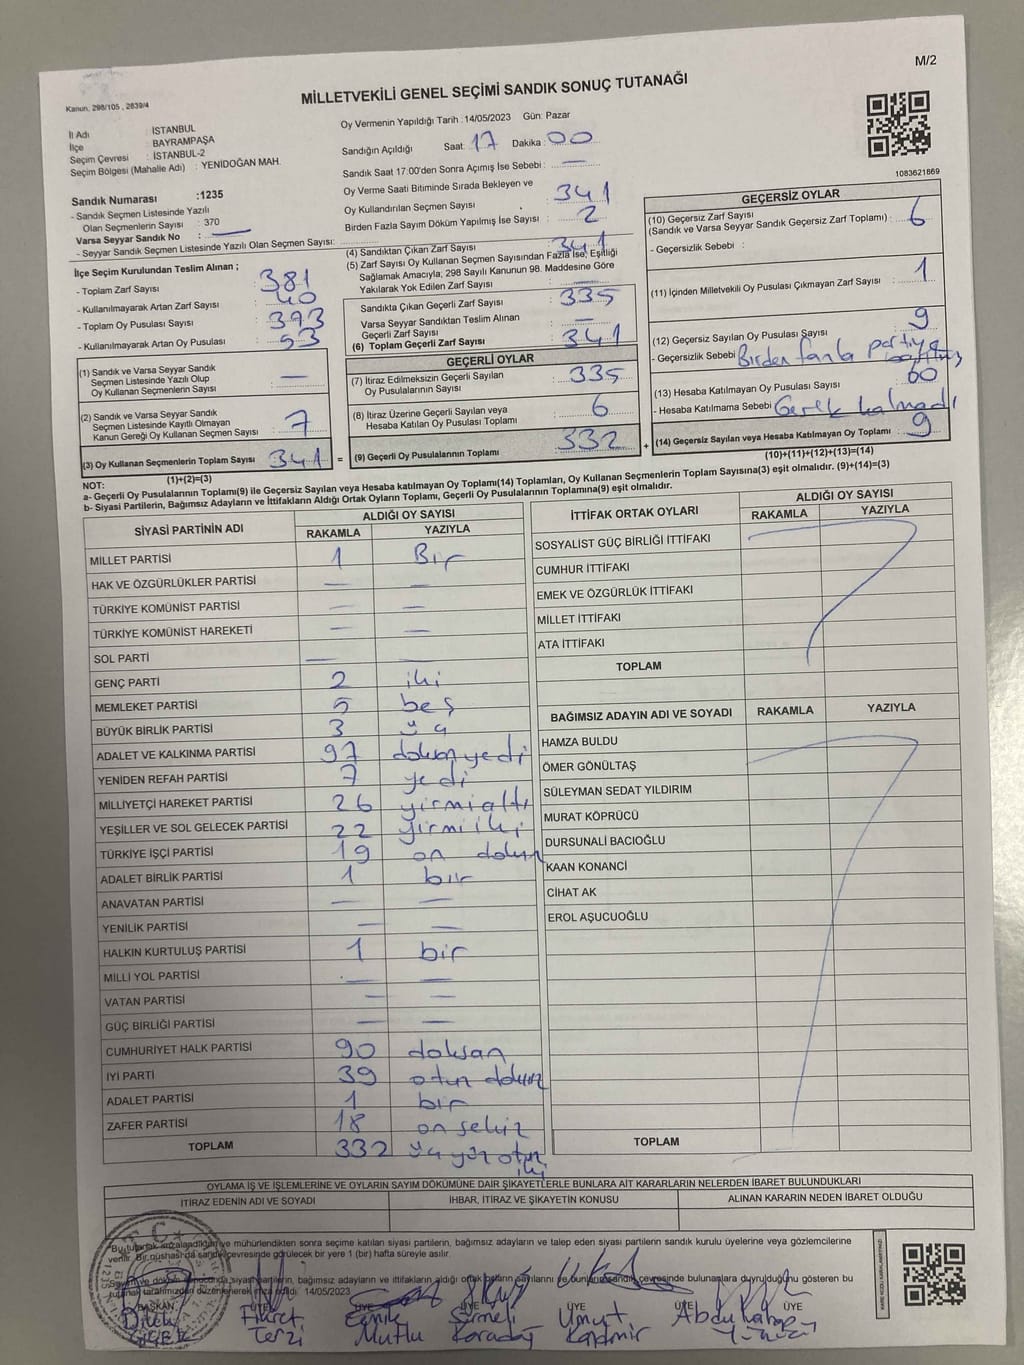 M/2
MİLLETVEKİLİ GENEL SEÇİMİ SANDIK SONUÇ TUTANAĞI
Kanun, 298/105 , 2839/4
İl Adı : İSTANBUL
İlçe : BAYRAMPAŞA
Seçim Çevresi : İSTANBUL-2
Seçim Bölgesi (Mahalle Adı) : YENİDOĞAN MAH.
Sandık Numarası :1235
- Sandık Seçmen Listesinde Yazılı
Olan Seçmenlerin Sayısı : 370
Varsa Seyyar Sandık No :
- Seyyar Sandık Seçmen Listesinde Yazılı Olan Seçmen Sayısı:
Oy Vermenin Yapıldığı Tarih :14/05/2023 Gün: Pazar
Sandığın Açıldığı Saat: 17 Dakika: 00
Sandık Saat 17:00'den Sonra Açımış İse Sebebi : —
Oy Verme Saati Bitiminde Sırada Bekleyen ve
Oy Kullandırılan Seçmen Sayısı : 341
Birden Fazla Sayım Döküm Yapılmış İse Sayısı : 2
1083621869
İlçe Seçim Kurulundan Teslim Alınan ;
- Toplam Zarf Sayısı : 381
- Kullanılmayarak Artan Zarf Sayısı : 40
- Toplam Oy Pusulası Sayısı : 393
- Kullanılmayarak Artan Oy Pusulası : 53
(1) Sandık ve Varsa Seyyar Sandık
Seçmen Listesinde Yazılı Olup
Oy Kullanan Seçmenlerin Sayısı : —
(2) Sandık ve Varsa Seyyar Sandık
Seçmen Listesinde Kayıtlı Olmayan
Kanun Gereği Oy Kullanan Seçmen Sayısı : 7
(3) Oy Kullanan Seçmenlerin Toplam Sayısı 341
(1)+(2)=(3)
(4) Sandıktan Çıkan Zarf Sayısı : 341
(5) Zarf Sayısı Oy Kullanan Seçmen Sayısından Fazla İse, Eşitliği
Sağlamak Amacıyla, 298 Sayılı Kanunun 98. Maddesine Göre
Yakılarak Yok Edilen Zarf Sayısı :
Sandıkta Çıkan Geçerli Zarf Sayısı : 335
Varsa Seyyar Sandıktan Teslim Alınan
Geçerli Zarf Sayısı : —
(6) Toplam Geçerli Zarf Sayısı : 341
GEÇERLİ OYLAR
(7) İtiraz Edilmeksizin Geçerli Sayılan
Oy Pusulalarının Sayısı : 335
(8) İtiraz Üzerine Geçerli Sayılan veya
Hesaba Katılan Oy Pusulası Toplamı : 6
= (9) Geçerli Oy Pusulalarının Toplamı : 332
GEÇERSİZ OYLAR
(10) Geçersiz Zarf Sayısı
(Sandık ve Varsa Seyyar Sandık Geçersiz Zarf Toplamı) : 6
- Geçersizlik Sebebi :
(11) İçinden Milletvekili Oy Pusulası Çıkmayan Zarf Sayısı : 1
(12) Geçersiz Sayılan Oy Pusulası Sayısı : 9
- Geçersizlik Sebebi Birden fazla partiye
(13) Hesaba Katılmayan Oy Pusulası Sayısı : 60
- Hesaba Katılmama Sebebi Gerek kalmadı
+ (14) Geçersiz Sayılan veya Hesaba Katılmayan Oy Toplamı : 9
(10)+(11)+(12)+(13)=(14)
NOT:
a- Geçerli Oy Pusulalarının Toplamı(9) ile Geçersiz Sayılan veya Hesaba katılmayan Oy Toplamı(14) Toplamları, Oy Kullanan Seçmenlerin Toplam Sayısına(3) eşit olmalıdır. (9)+(14)=(3)
b- Siyasi Partilerin, Bağımsız Adayların ve İttifakların Aldığı Ortak Oyların Toplamı, Geçerli Oy Pusulalarının Toplamına(9) eşit olmalıdır.
SİYASİ PARTİNİN ADI ALDIĞI OY SAYISI
RAKAMLA YAZIYLA
MİLLET PARTİSİ 1 Bir
HAK VE ÖZGÜRLÜKLER PARTİSİ — —
TÜRKİYE KOMÜNİST PARTİSİ — —
TÜRKİYE KOMÜNİST HAREKETİ — —
SOL PARTİ — —
GENÇ PARTİ 2 iki
MEMLEKET PARTİSİ 5 beş
BÜYÜK BİRLİK PARTİSİ 3 üç
ADALET VE KALKINMA PARTİSİ 97 doksan yedi
YENİDEN REFAH PARTİSİ 7 yedi
MİLLİYETÇİ HAREKET PARTİSİ 26 yirmi altı
YEŞİLLER VE SOL GELECEK PARTİSİ 22 yirmi iki
TÜRKİYE İŞÇİ PARTİSİ 19 on dokuz
ADALET BİRLİK PARTİSİ 1 bir
ANAVATAN PARTİSİ — —
YENİLİK PARTİSİ — —
HALKIN KURTULUŞ PARTİSİ 1 bir
MİLLİ YOL PARTİSİ — —
VATAN PARTİSİ — —
GÜÇ BİRLİĞİ PARTİSİ — —
CUMHURİYET HALK PARTİSİ 90 doksan
İYİ PARTİ 39 otuz dokuz
ADALET PARTİSİ 1 bir
ZAFER PARTİSİ 18 on sekiz
TOPLAM 332 üç yüz otuz iki
İTTİFAK ORTAK OYLARI ALDIĞI OY SAYISI
RAKAMLA YAZIYLA
SOSYALİST GÜÇ BİRLİĞİ İTTİFAKI
CUMHUR İTTİFAKI
EMEK VE ÖZGÜRLÜK İTTİFAKI
MİLLET İTTİFAKI
ATA İTTİFAKI
TOPLAM
BAĞIMSIZ ADAYIN ADI VE SOYADI RAKAMLA YAZIYLA
HAMZA BULDU
ÖMER GÖNÜLTAŞ
SÜLEYMAN SEDAT YILDIRIM
MURAT KÖPRÜCÜ
DURSUNALİ BACIOĞLU
KAAN KONANCİ
CİHAT AK
EROL AŞUCUOĞLU
TOPLAM
OYLAMA İŞ VE İŞLEMLERİNE VE OYLARIN SAYIM DÖKÜMÜNE DAİR ŞİKAYETLERLE BUNLARA AİT KARARLARIN NELERDEN İBARET BULUNDUKLARI
İTİRAZ EDENİN ADI VE SOYADI İHBAR, İTİRAZ VE ŞİKAYETİN KONUSU ALINAN KARARIN NEDEN İBARET OLDUĞU
Bu tutanak imzalandıktan ve mühürlendikten sonra seçime katılan siyasi partilerin, bağımsız adayların ve talep eden siyasi partilerin sandık kurulu üyelerine veya gözlemcilerine
verilir. Bir nüshası da sandık çevresinde görülecek bir yere 1 (bir) hafta süreyle asılır.
Sayım ve döküm sonucunda siyasi partilerin, bağımsız adayların ve ittifakların aldığı ortak oyların sayılarını ve bunların sandık çevresinde bulunanlara duyrulduğunu gösteren bu
tutanak tarafımızdan düzenlenerek imza edildi. 14/05/2023
BAŞKAN ÜYE ÜYE ÜYE ÜYE ÜYE ÜYE
Dilek Fikret Emik Sırmeli Umut
ÇİÇEK Terzi Mutlu Karadağ Kandmir